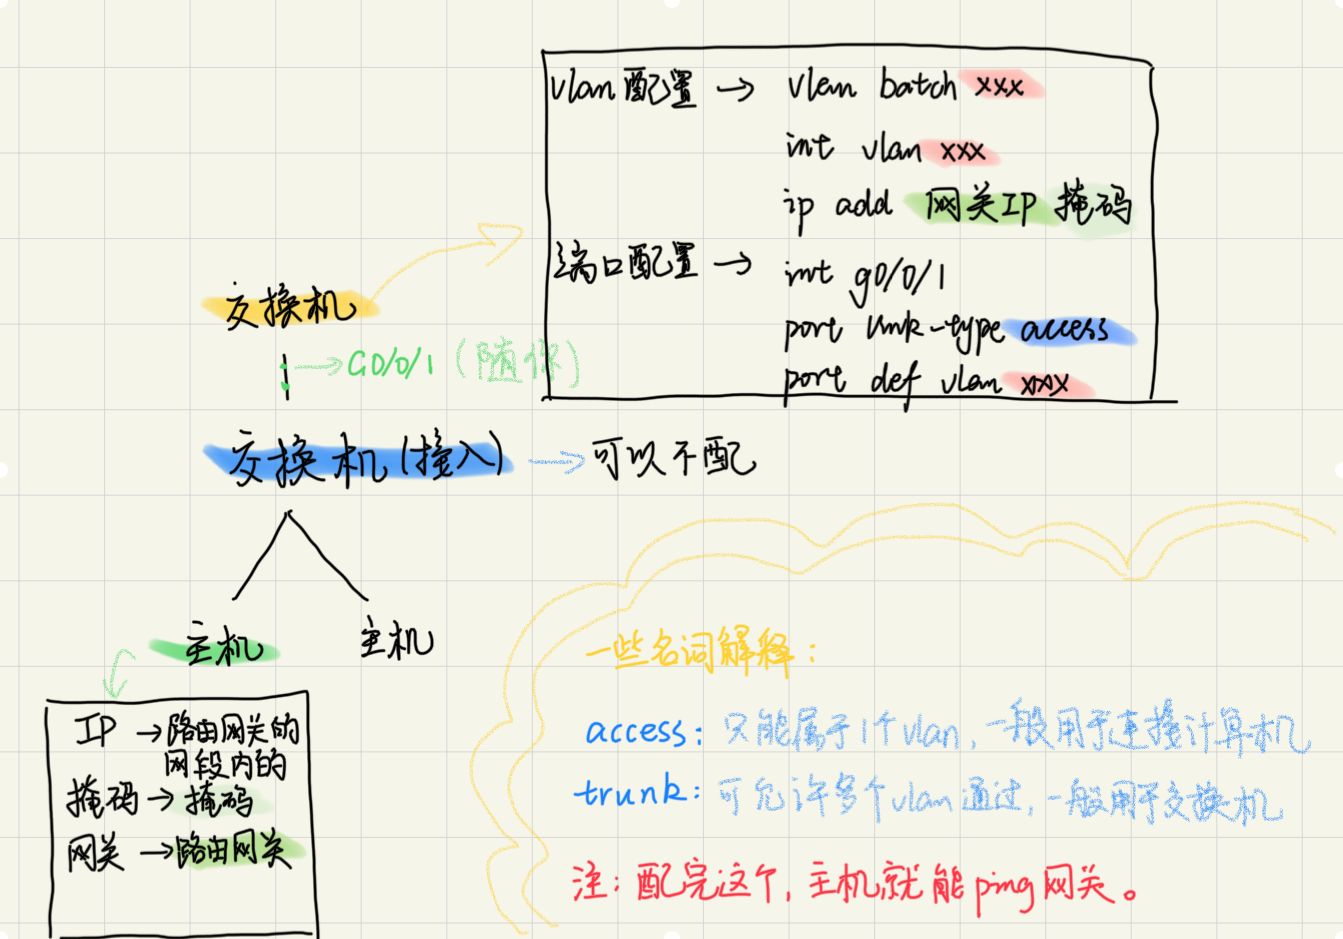 vlan配置 → vlan batch xxx
int vlan xxx
ip add 网关IP 掩码
端口配置 → int g0/0/1
port link-type access
port def vlan xxx
交换机
→ G0/0/1 (随你)
交换机(接入) → 可以不配
主机 主机
IP → 路由网关的
网段内的
掩码 → 掩码
网关 → 路由网关
一些名词解释:
access: 只能属于1个vlan, 一般用于连接计算机
trunk: 可允许多个vlan通过, 一般用于交换机
注: 配完这个, 主机就能ping网关。